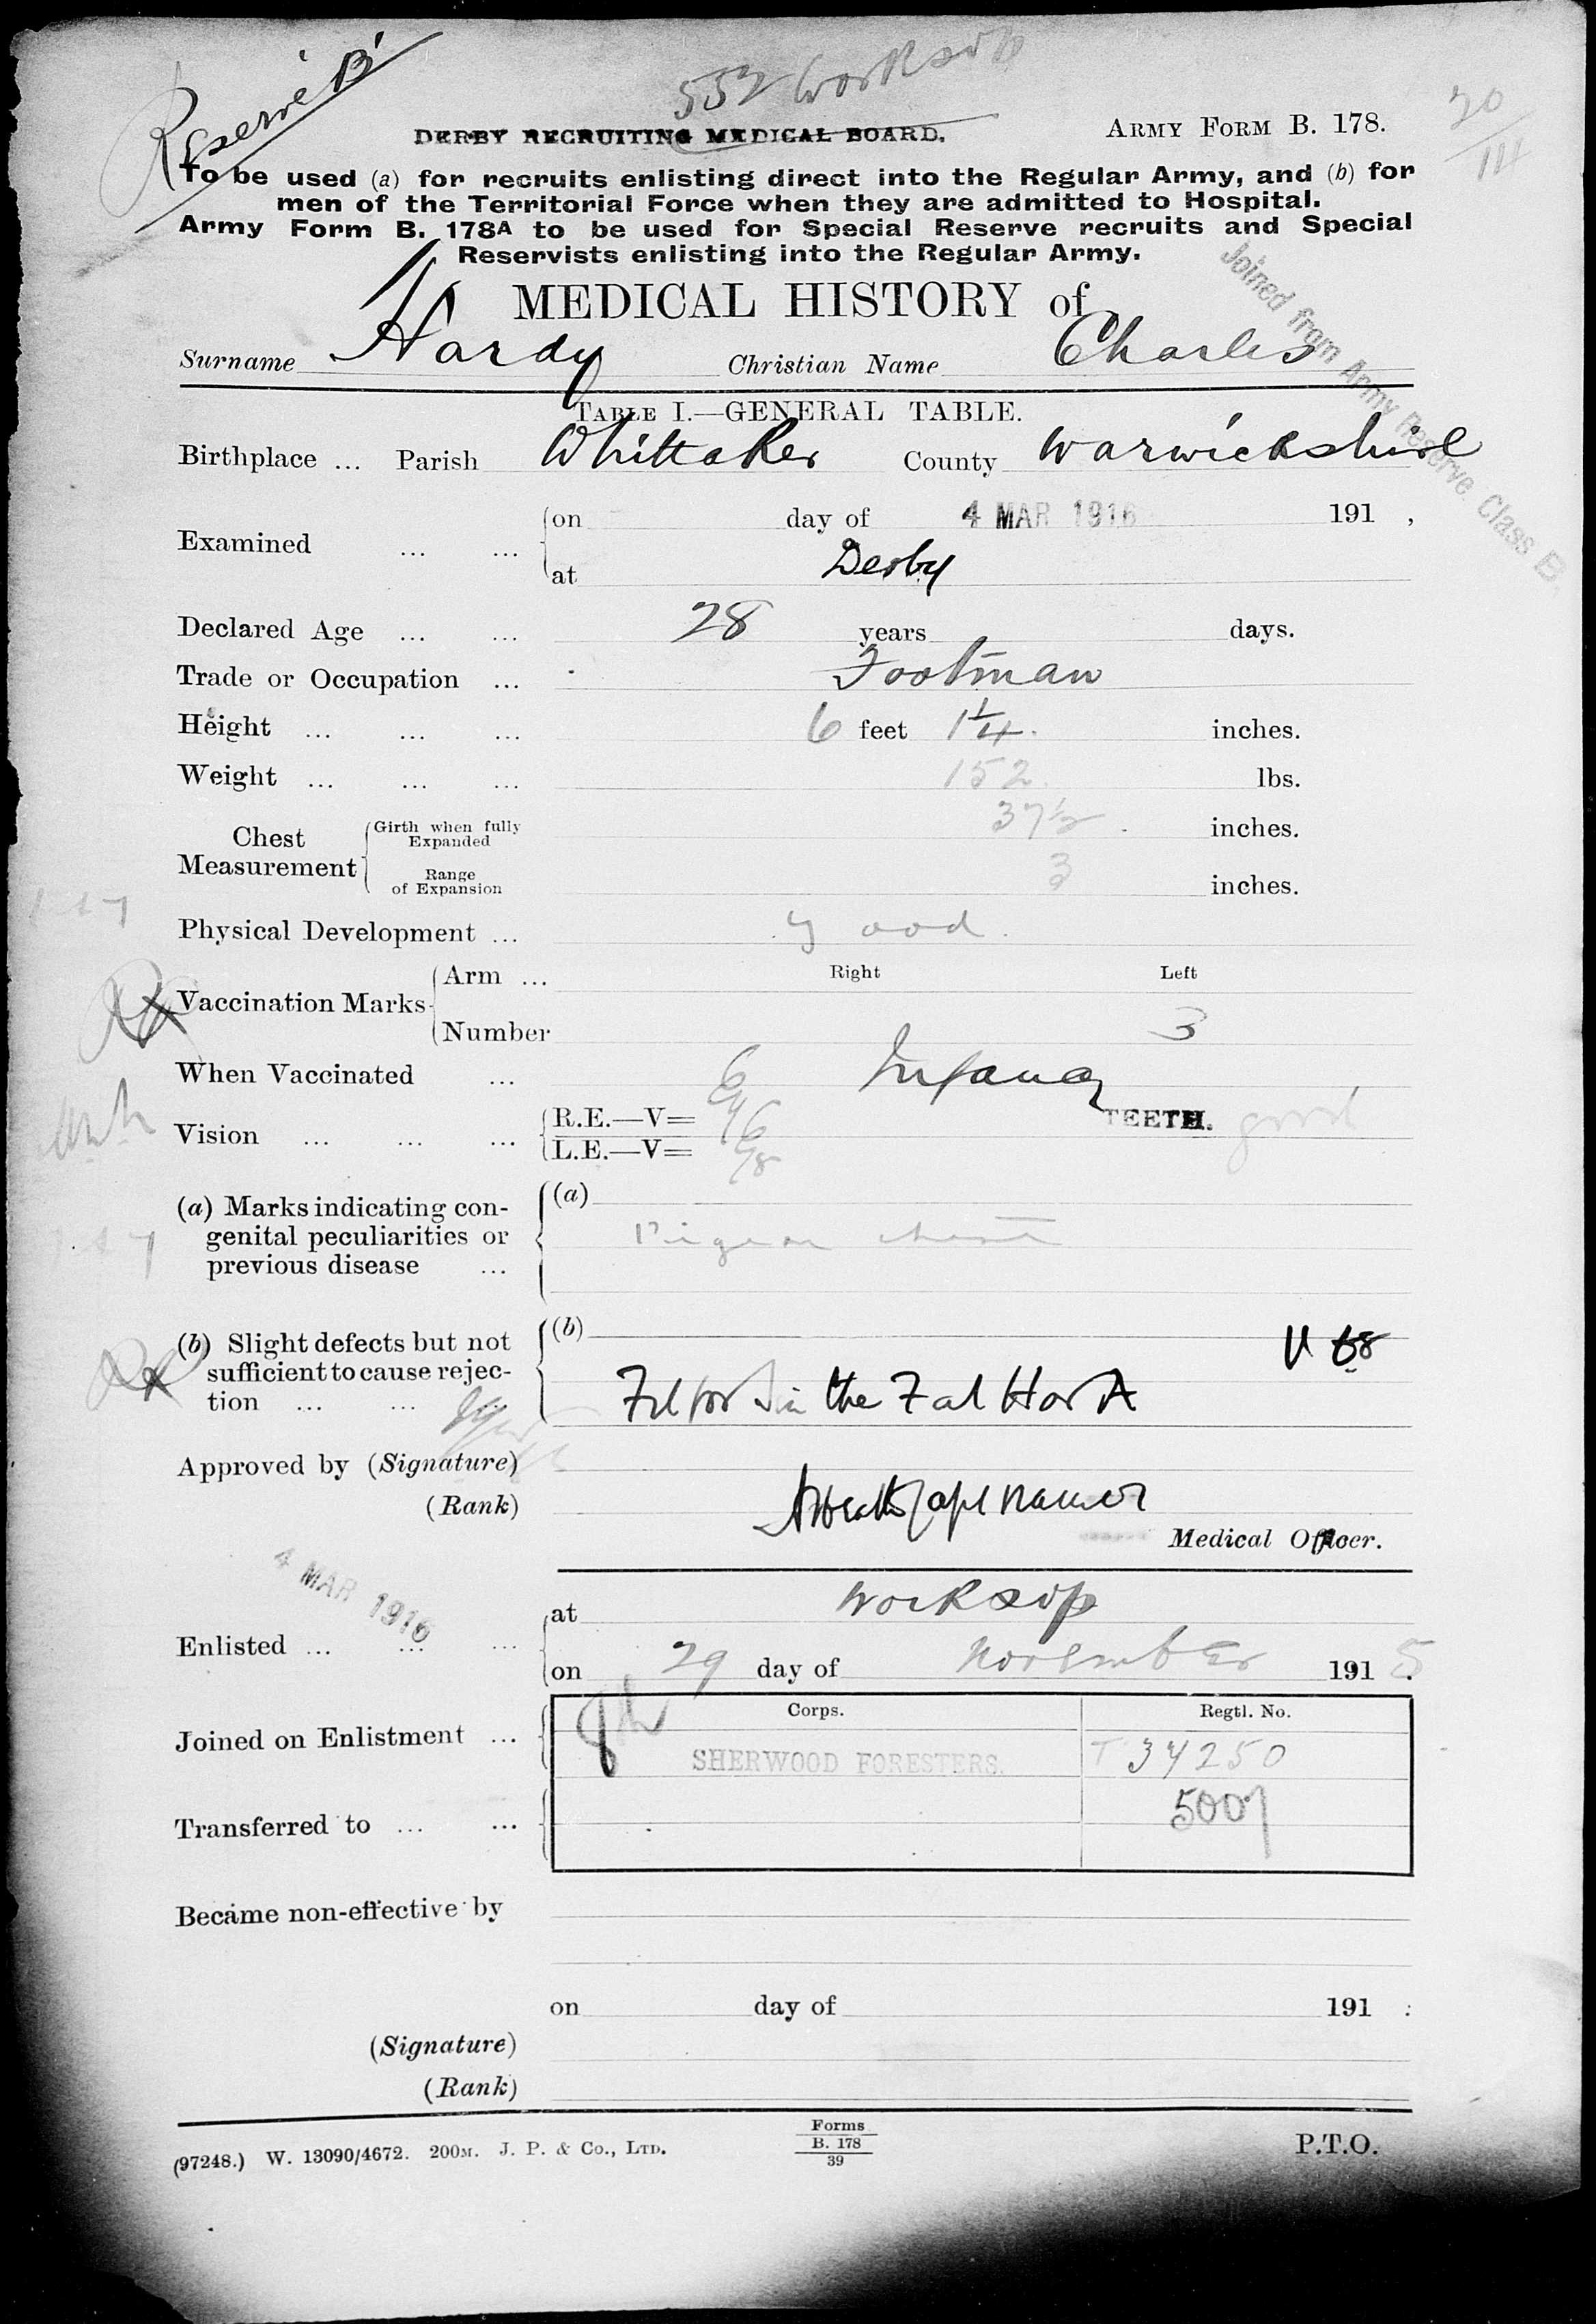 Reserve 'B'
552 Worksop
DERBY RECRUITING MEDICAL BOARD.
ARMY FORM B. 178.
To be used (a) for recruits enlisting direct into the Regular Army, and (b) for
men of the Territorial Force when they are admitted to Hospital.
Army Form B. 178A to be used for Special Reserve recruits and Special
Reservists enlisting into the Regular Army.
Joined from Army Reserve. Class B.
MEDICAL HISTORY of
Surname Hardy Christian Name Charles
TABLE I.—GENERAL TABLE.
Birthplace ... Parish Whittaker County Warwickshire
Examined ... ... on day of 4 MAR 1916 191 ,
at Derby
Declared Age ... ... 28 years days.
Trade or Occupation ... Footman
Height ... ... ... 6 feet 1 1/4 inches.
Weight ... ... ... 152 lbs.
Chest Measurement Girth when fully Expanded 37 1/2 inches.
Range of Expansion 3 inches.
Physical Development ... good.
Vaccination Marks Arm ... Right Left
Number 3
When Vaccinated ... Infancy
Vision ... ... ... R.E.—V= 6/6 TEETH. good
L.E.—V= 6/8
(a) Marks indicating con-
genital peculiarities or
previous disease ...
(a) Pigeon chest
(b) Slight defects but not
sufficient to cause rejec-
tion ... ...
(b)
in the
Approved by (Signature)
(Rank)
Medical Officer.
4 MAR 1916
Enlisted ... ... ... at Worksop
on 29 day of November 1915.
Corps. Regtl. No.
Joined on Enlistment ... 8th SHERWOOD FORESTERS. T 34250
Transferred to ... ... 5007
Became non-effective by
on day of 191 :
(Signature)
(Rank)
(97248.) W. 13090/4672. 200M. J. P. & Co., LTD.
Forms
B. 178
39
P.T.O.